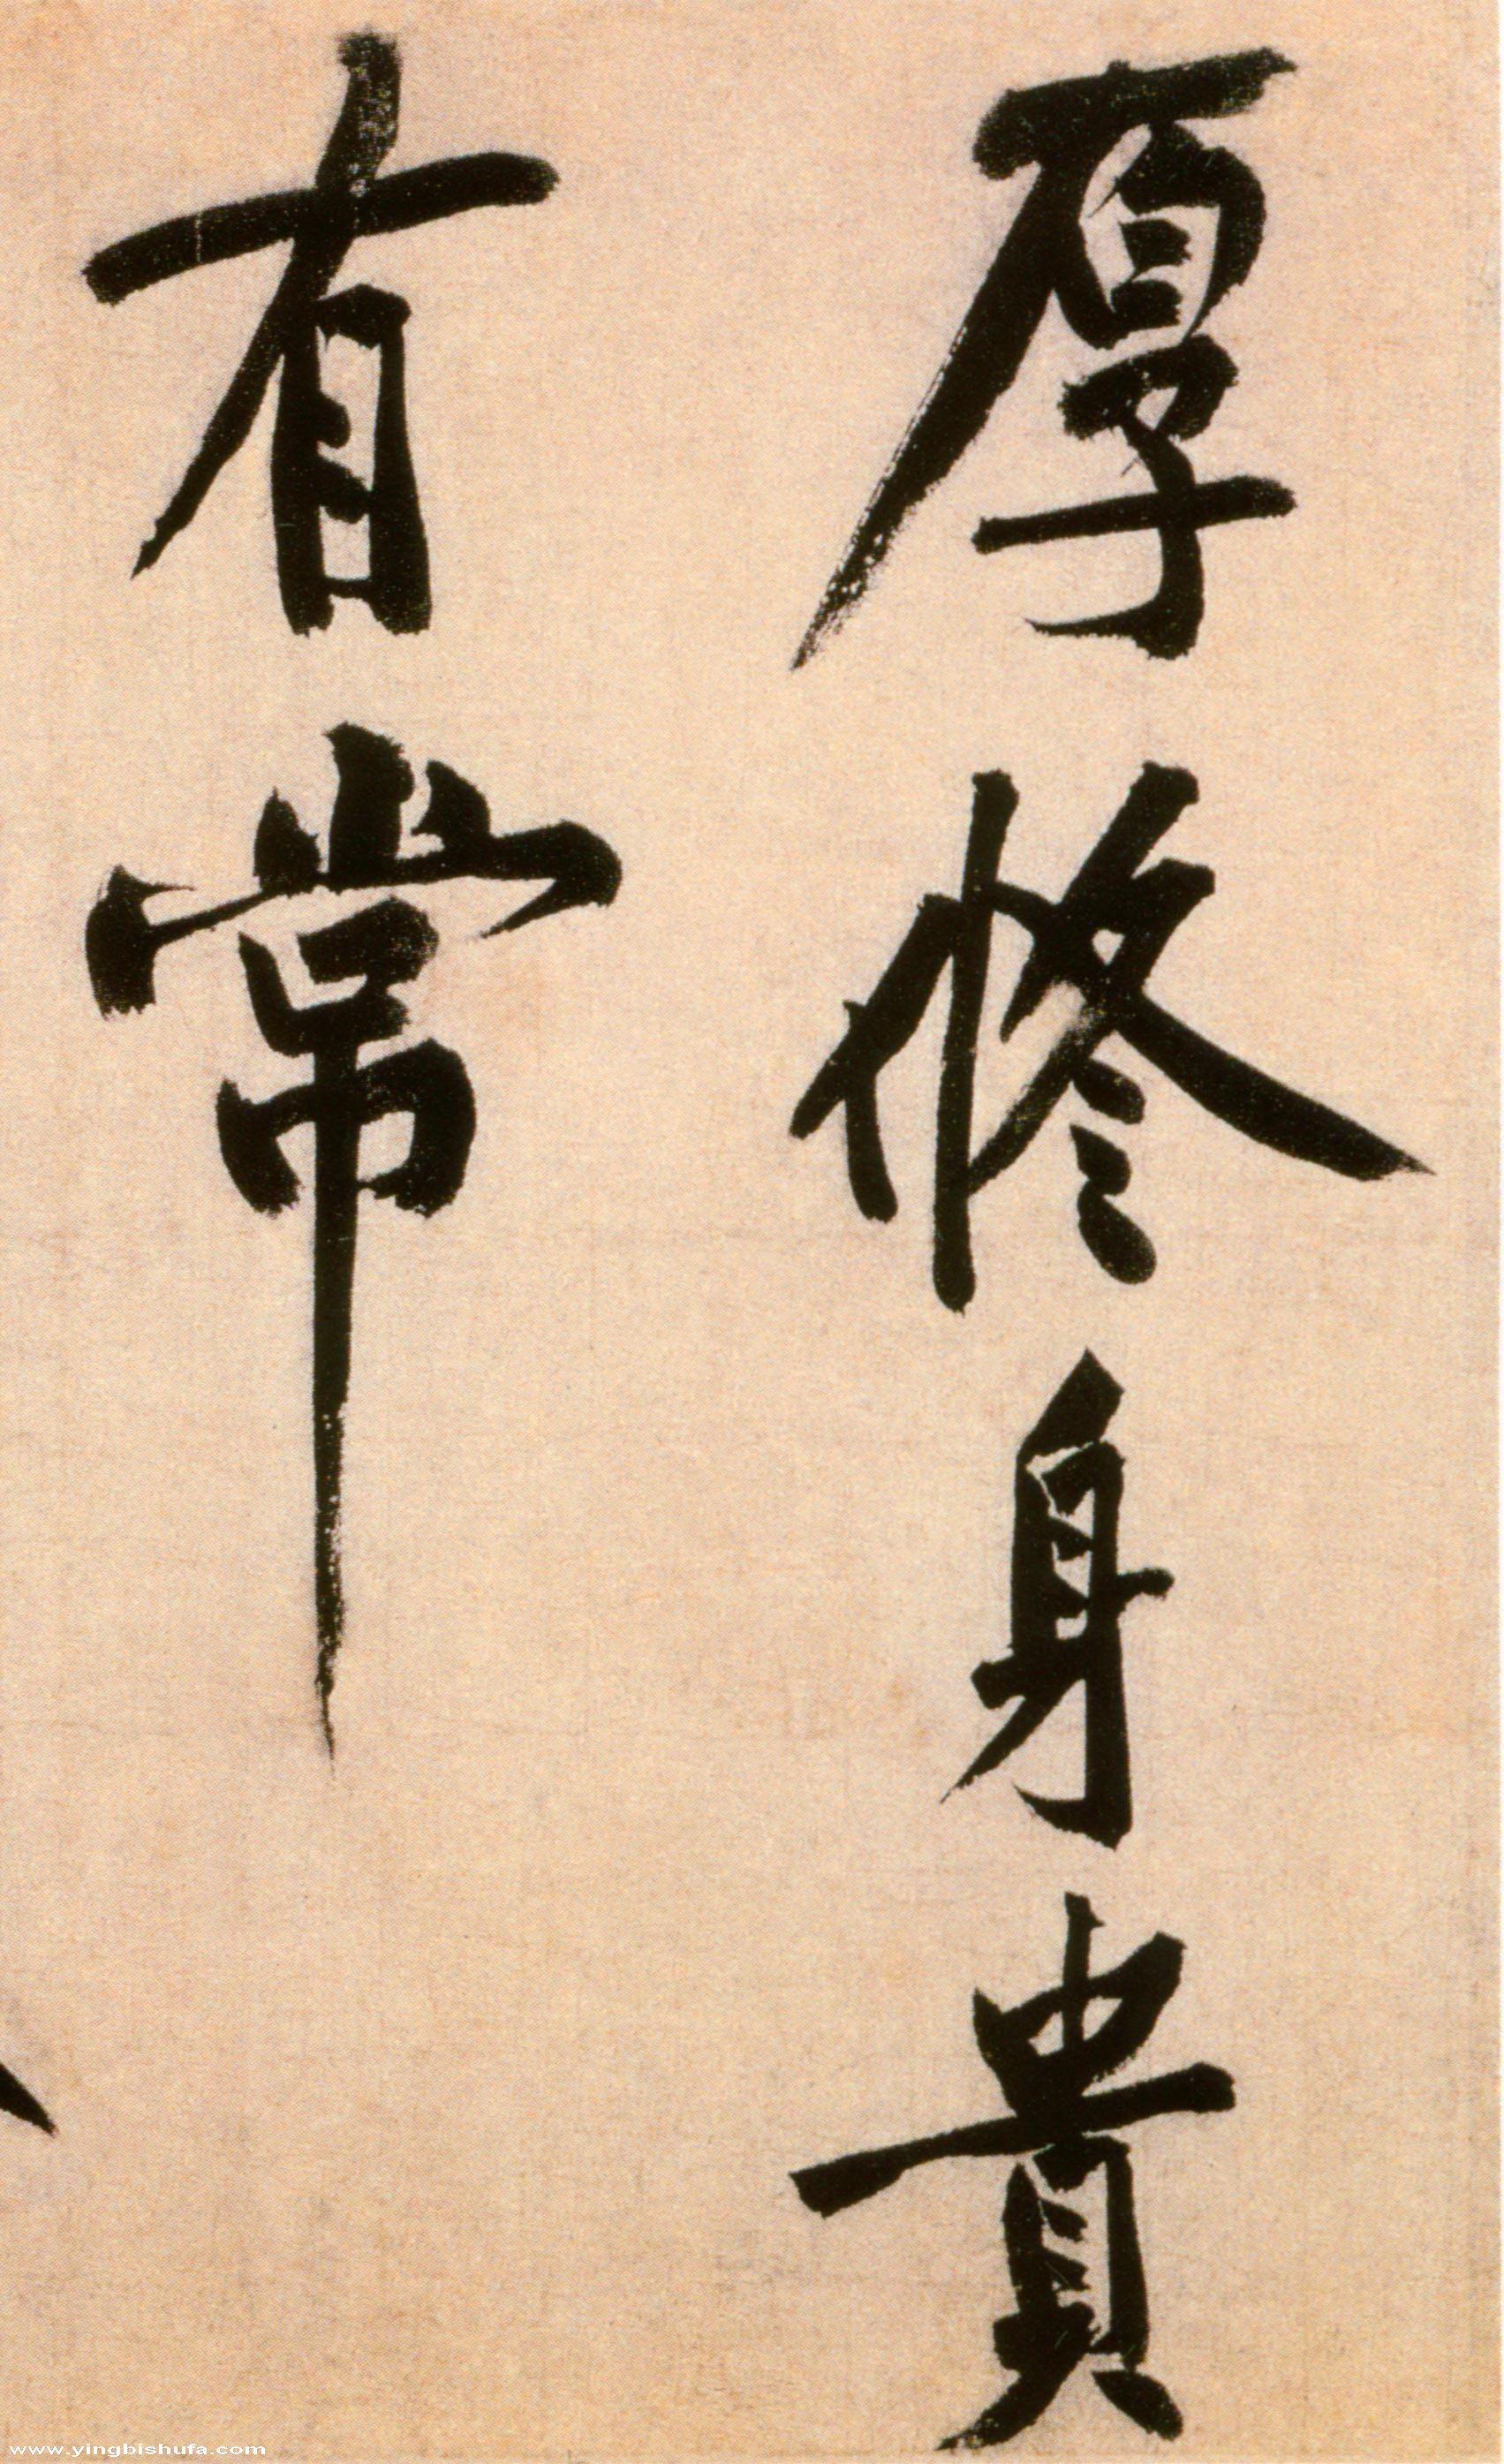 厚修身貴
有常
www.yingbishufa.com